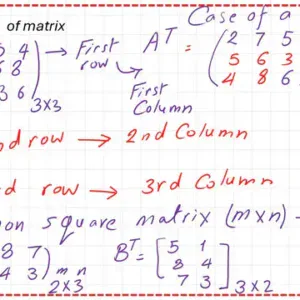 of matrix
Case of a
5 4
6 8
3 6
3x3
→ First row
First Column
A^T = (2 7 5
5 6 3
4 8 6
row → 2nd Column
row → 3rd Column
on square matrix (m×n) -
8 7
4 3
m n
2×3
B^T = [5 1
8 4
7 3]
3×2